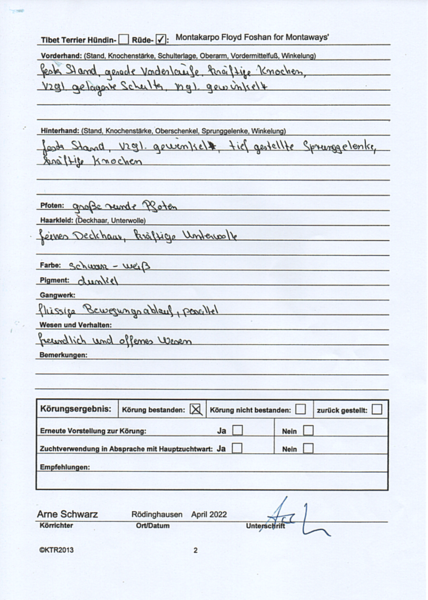 Tibet Terrier Hündin- Rüde- ✓: Montakarpo Floyd Foshan for Montaways'
Vorderhand: (Stand, Knochenstärke, Schulterlage, Oberarm, Vordermittelfuß, Winkelung)
feste Stand, gerade Vorderläufe, kräftige Knochen,
vzgl gelagerte Schulter, vzgl. gewinkelt
Hinterhand: (Stand, Knochenstärke, Oberschenkel, Sprunggelenke, Winkelung)
feste Stand, vzgl. gewinkelt, tief gestellte Sprunggelenke,
kräftige Knochen
Pfoten: große runde Pfoten
Haarkleid: (Deckhaar, Unterwolle)
feines Deckhaar, kräftige Unterwolle
Farbe: schwarz - weiß
Pigment: dunkel
Gangwerk:
flüssige Bewegungsablauf, parallel
Wesen und Verhalten:
freundlich und offenes Wesen
Bemerkungen:
Körungsergebnis: Körung bestanden: X Körung nicht bestanden: zurück gestellt:
Erneute Vorstellung zur Körung: Ja Nein
Zuchtverwendung in Absprache mit Hauptzuchtwart: Ja Nein
Empfehlungen:
Arne Schwarz Rödinghausen April 2022
Körrichter Ort/Datum Unterschrift
©KTR2013 2